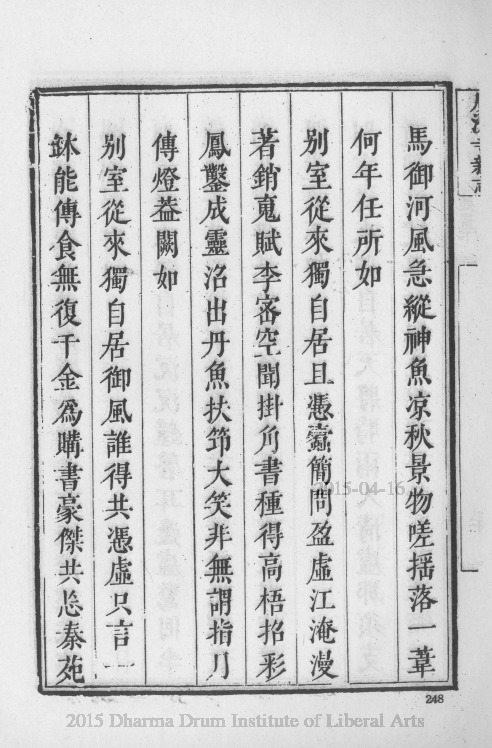 馬御河風急縱神魚凉秋景物嗟揺落一葦
何年任所如
別室從來獨自居且憑蠧簡問盈虛江淹漫
著銷䰟賦李宻空聞掛角書種得高梧招彩
鳳鑿成靈沼出丹魚扶笻大笑非無謂指月
傳燈葢闕如
別室從來獨自居御風誰得共憑虛只言一
鉢能傳食無復千金為購書豪傑共忘秦苑
248
2015-04-16
2015 Dharma Drum Institute of Liberal Arts